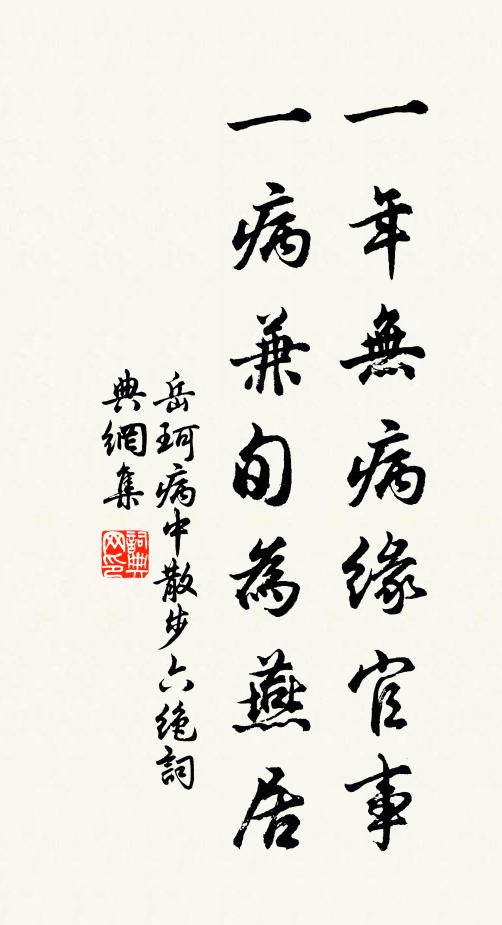 一年無病緣官事
一病兼旬為燕居
岳珂病中散步六絕詞
典網集
詞典
网印